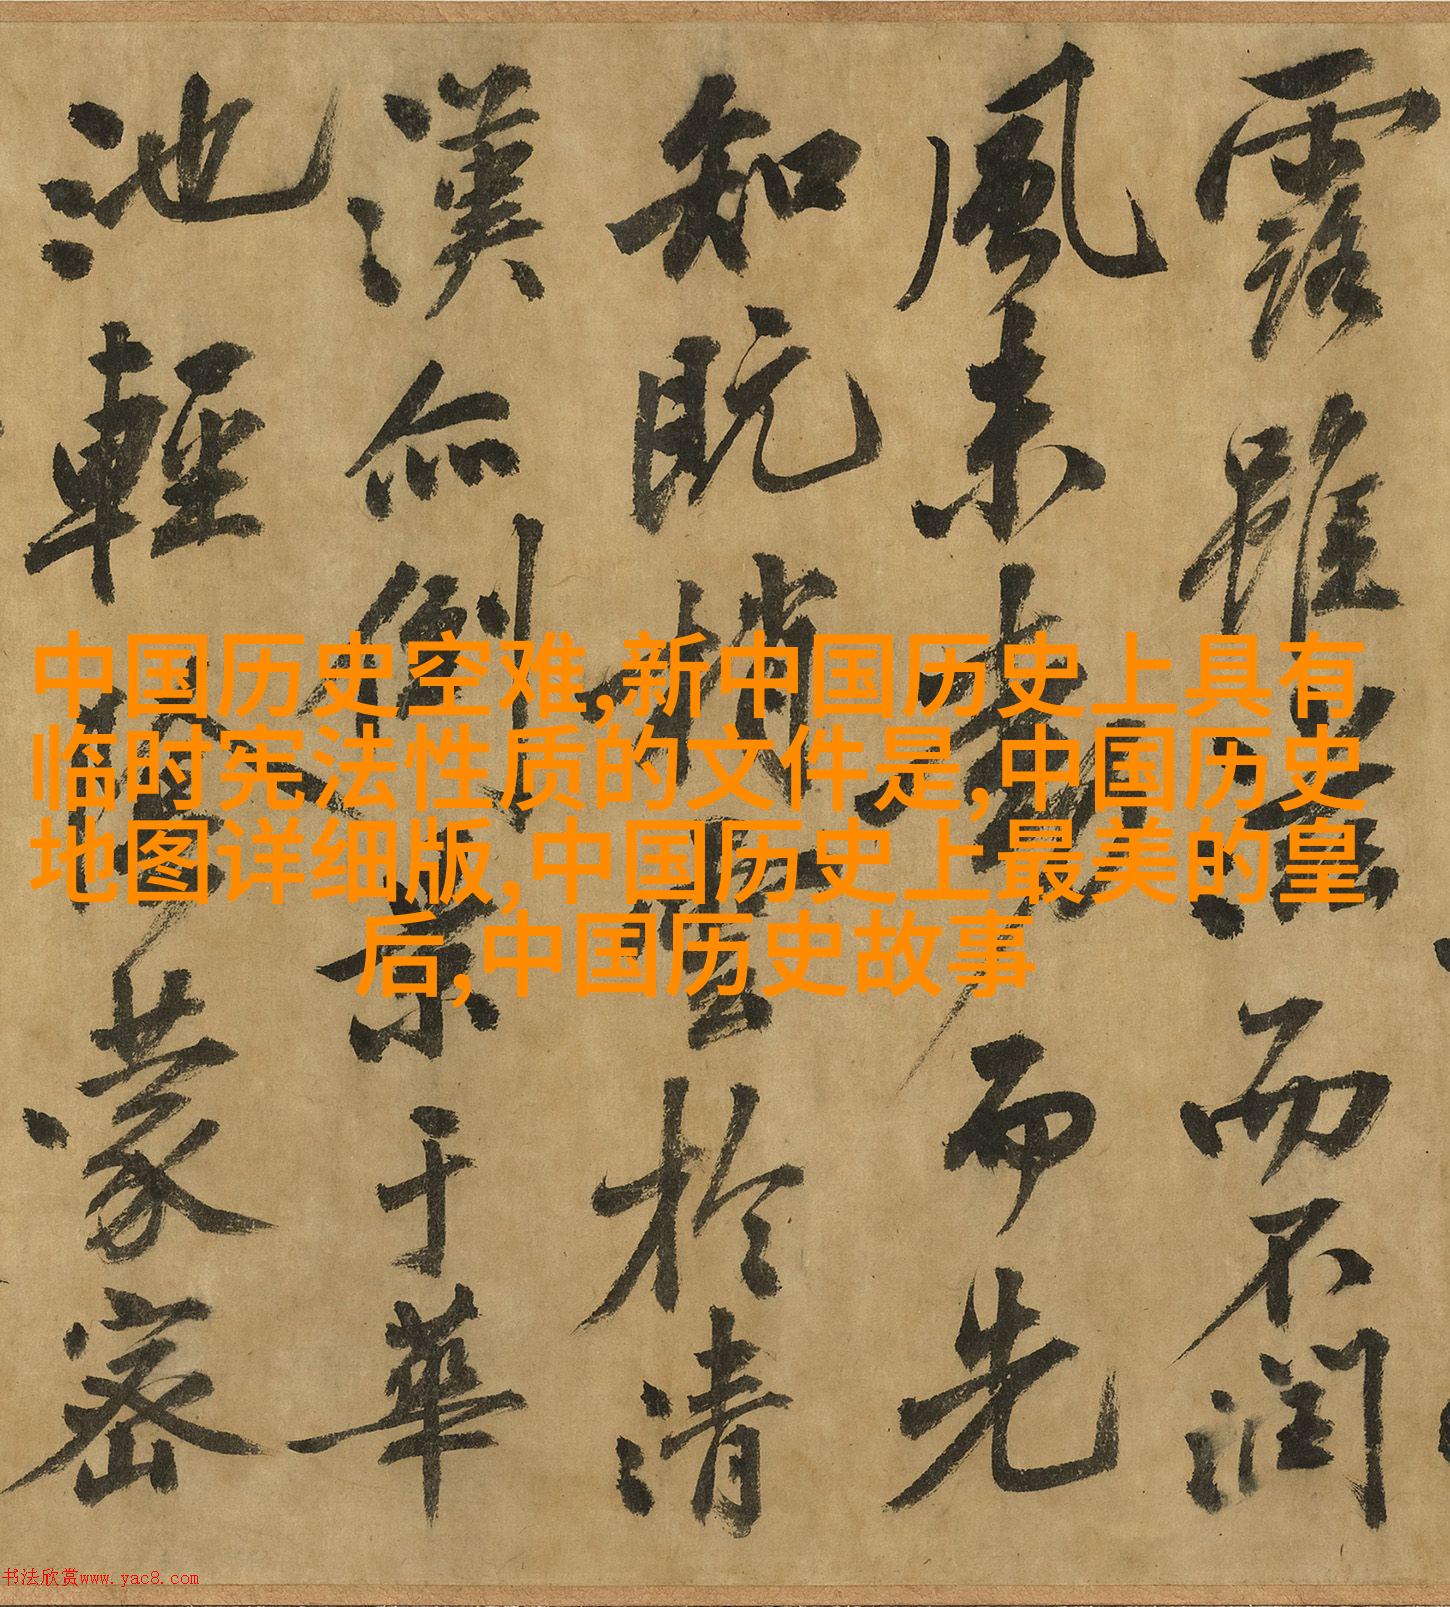 中国历史空难,新中国历史上具有
临时宪法性质的文件是,中国历史
地图详细版,中国历史上最美的皇
后,中国历史故事
露雖而不润
風未而先
知既梢雲於清
漢亦倒景于華
池輕陰蒙密
书法欣赏www.yac8.com